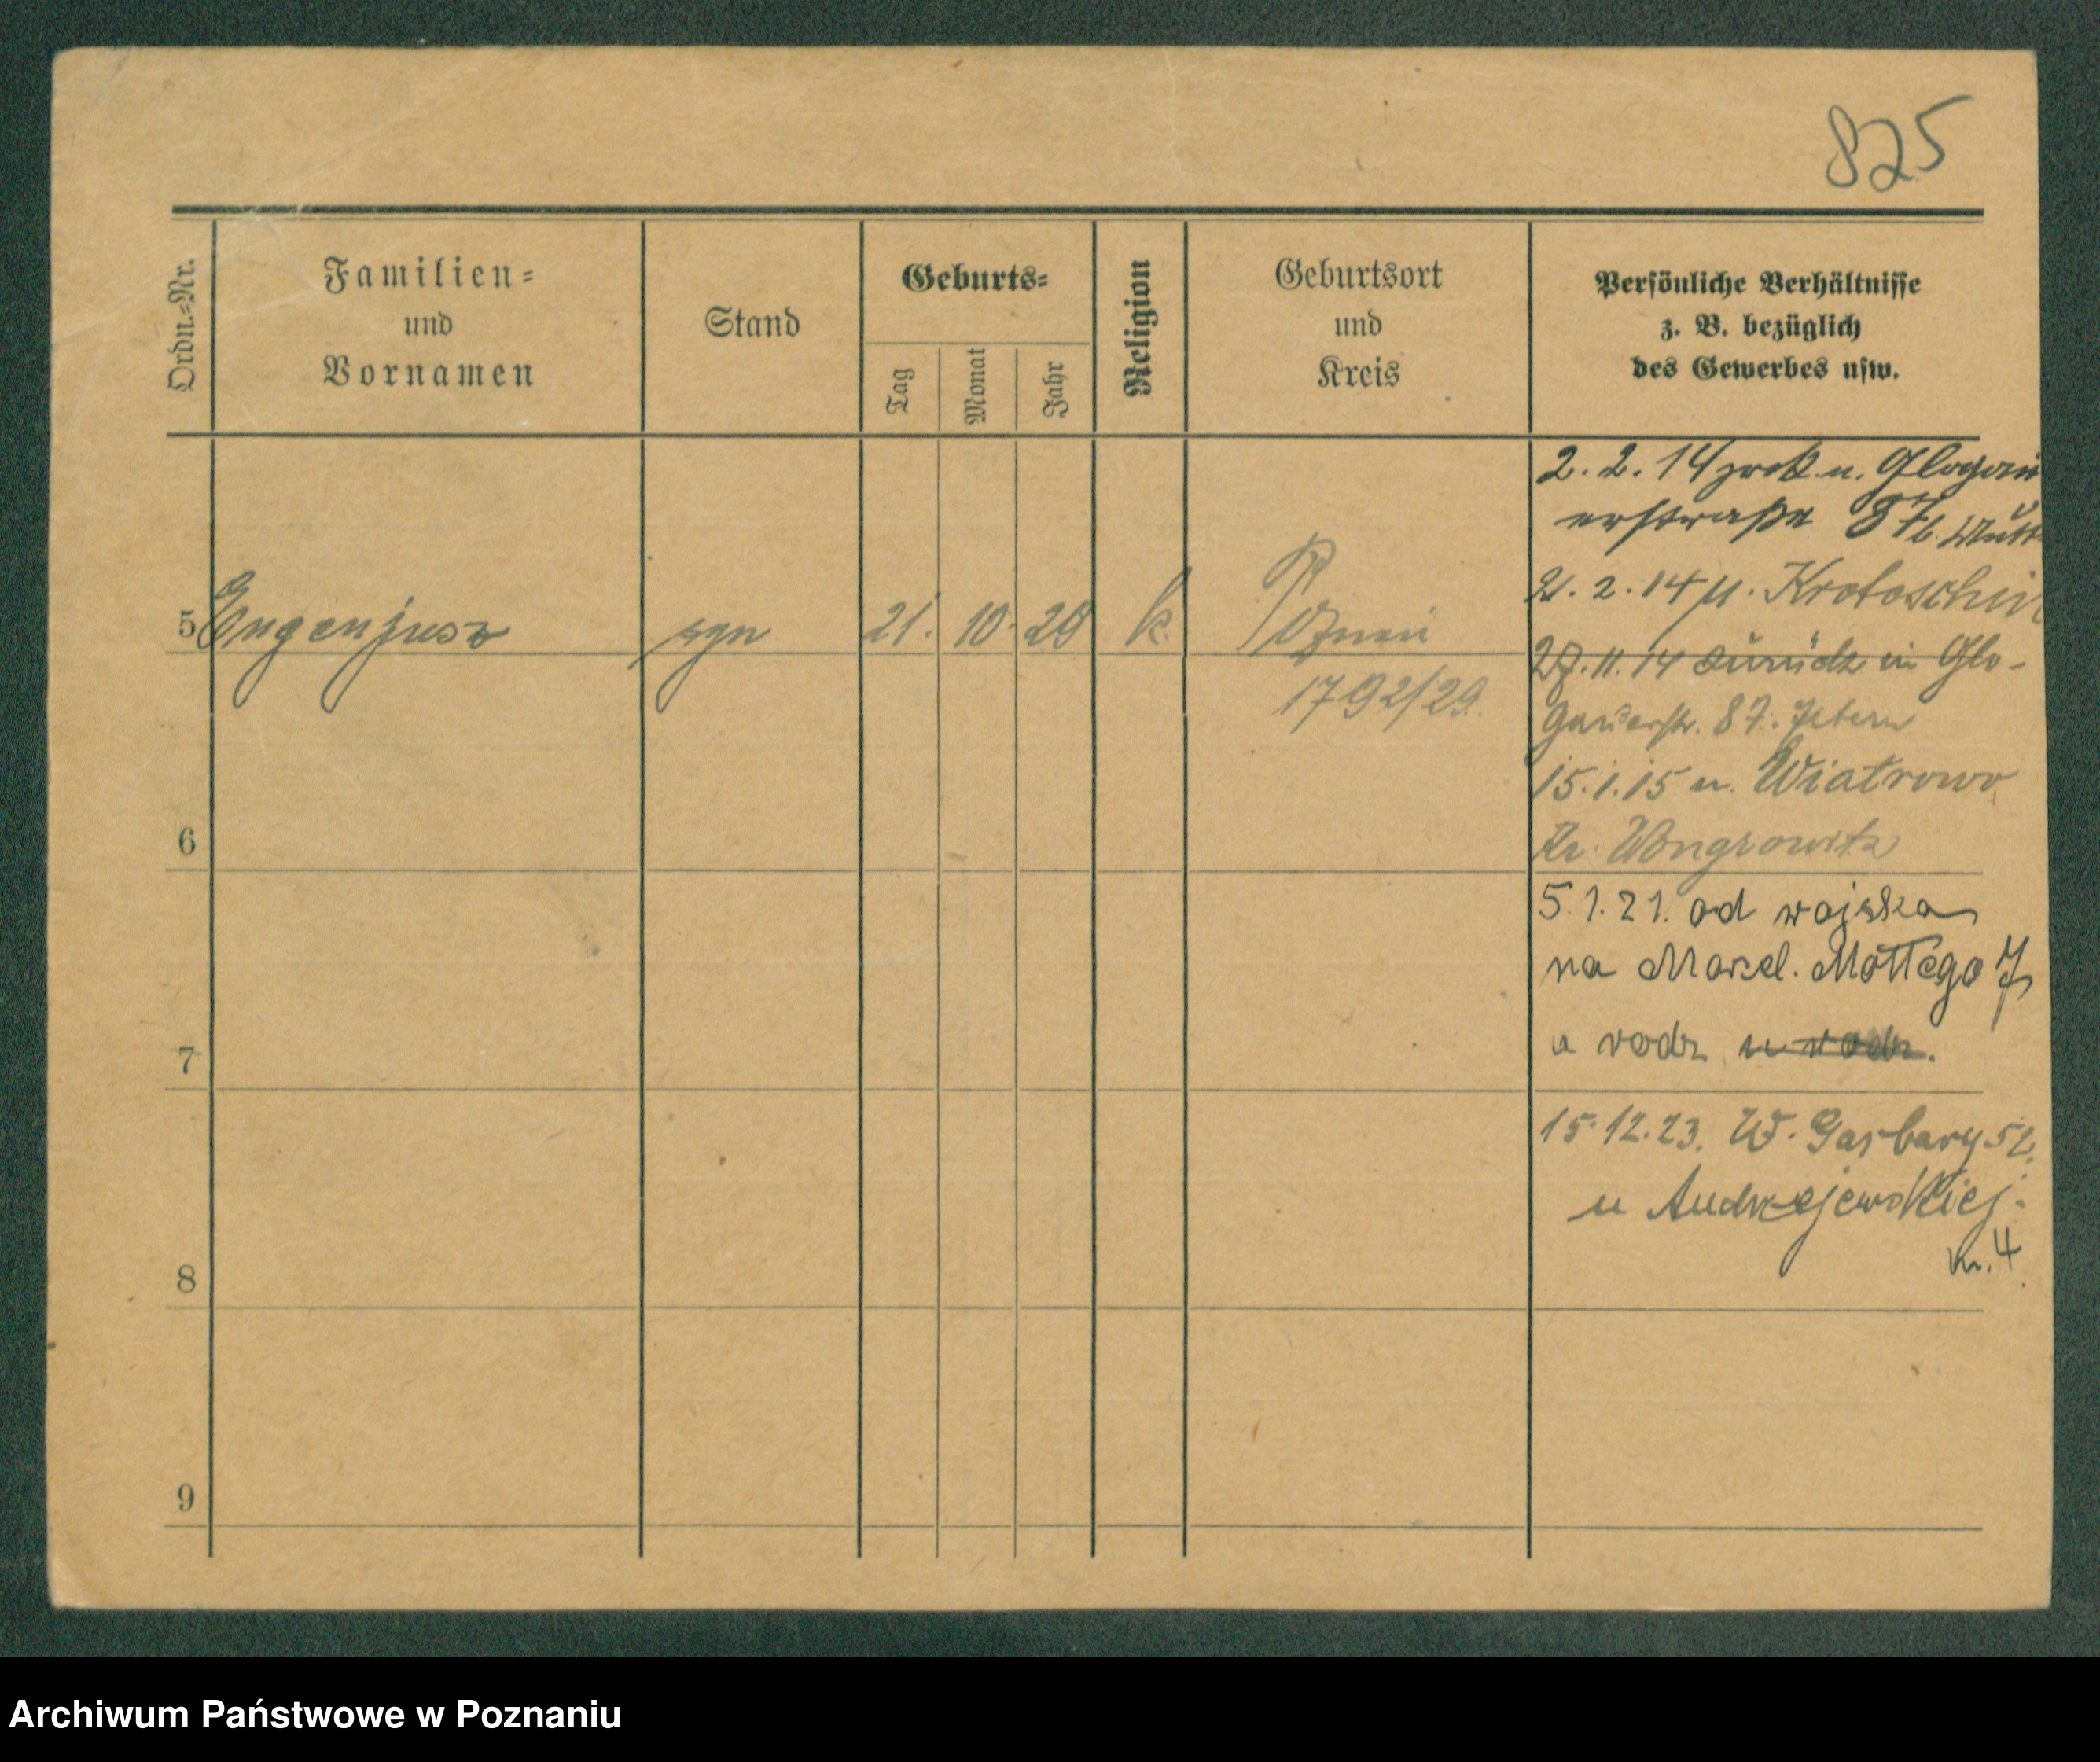 825
Ordn.=Nr.
Familien=
und
Vornamen
Stand
Geburts=
Tag
Monat
Jahr
Religion
Geburtsort
und
Kreis
Persönliche Verhältnisse
z. B. bezüglich
des Gewerbes usw.
2. 2. 14 zurück u. Glogau
erstraße 87 b. Mutt
21. 2. 14 u. Krotoschin
5 Eugenjusz syn 21. 10. 29 k. Poznań
27. 11. 14 zurück in Glo-
1792/29.
gauerstr. 87. Eltern
15. 1. 15 u. Wiatrowo
6
Kr. Wongrowitz
5. 1. 21. od wojska
na Marcel. Mottego 7
7
u rodz u rodz.
15. 12. 23. W. Garbary 52.
u Andrzejewskiej.
m. 4.
8
9
Archiwum Państwowe w Poznaniu